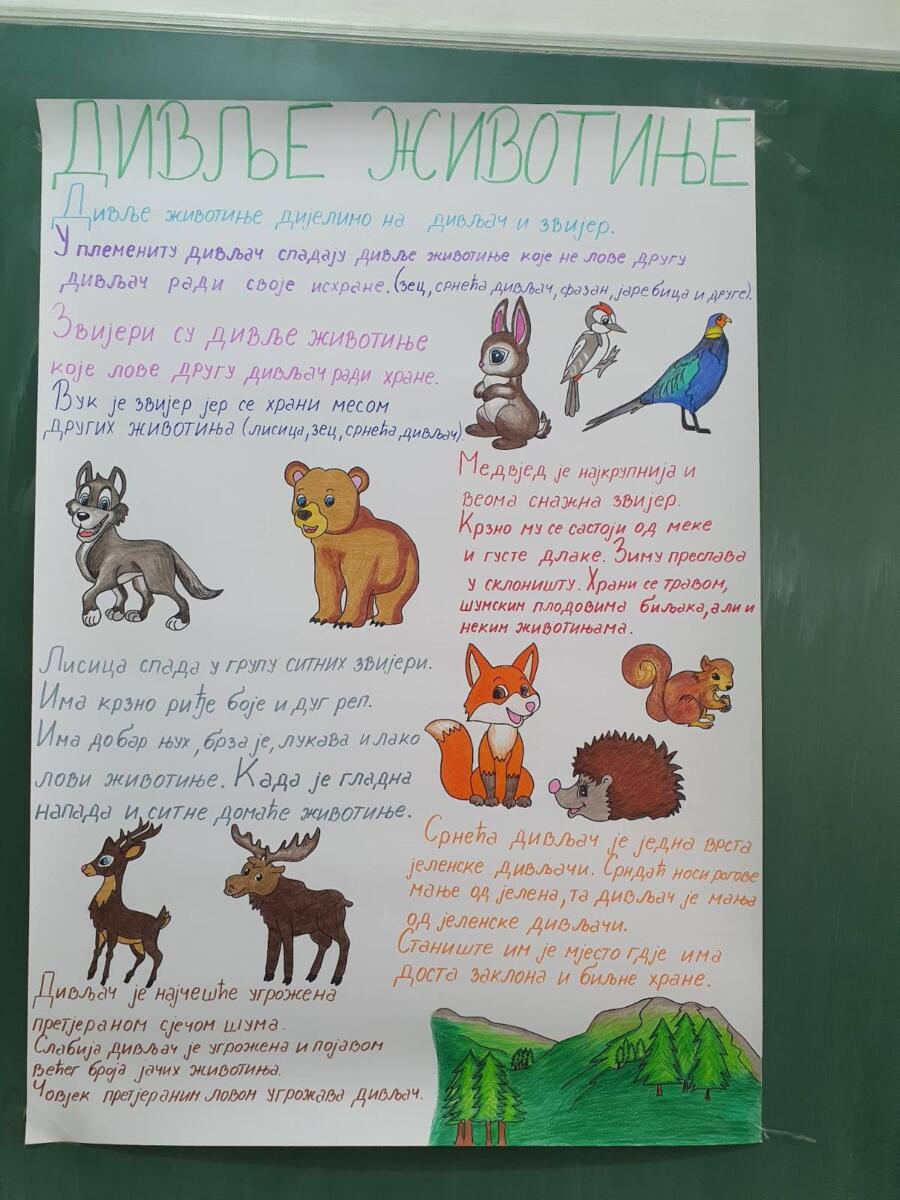 ДИВЉЕ ЖИВОТИЊЕ
Дивље животиње дијелимо на дивљач и звијер.
У племениту дивљач спадају дивље животиње које не лове другу
дивљач ради своје исхране. (зец, срнећа дивљач, фазан, јаребица и друге).
Звијери су дивље животиње
које лове другу дивљач ради хране.
Вук је звијер јер се храни месом
других животиња (лисица, зец, срнећа дивљач).
Медвјед је најкрупнија и
веома снажна звијер.
Крзно му се састоји од меке
и густе длаке. Зиму преспава
у склоништу. Храни се травом,
шумским плодовима биљака, али и
неким животињама.
Лисица спада у групу ситних звијери.
Има крзно риђе боје и дуг реп.
Има добар њух, брза је, лукава и лако
лови животиње. Када је гладна
напада и ситне домаће животиње.
Срнећа дивљач је једна врста
јеленске дивљачи. Срндаћ носи рогове
мање од јелена, та дивљач је мања
од јеленске дивљачи.
Станиште им је мјесто гдје има
доста заклона и биљне хране.
Дивљач је најчешће угрожена
претјераном сјечом шума.
Слабија дивљач је угрожена и појавом
већег броја јачих животиња.
Човјек претјераним ловом угрожава дивљач.